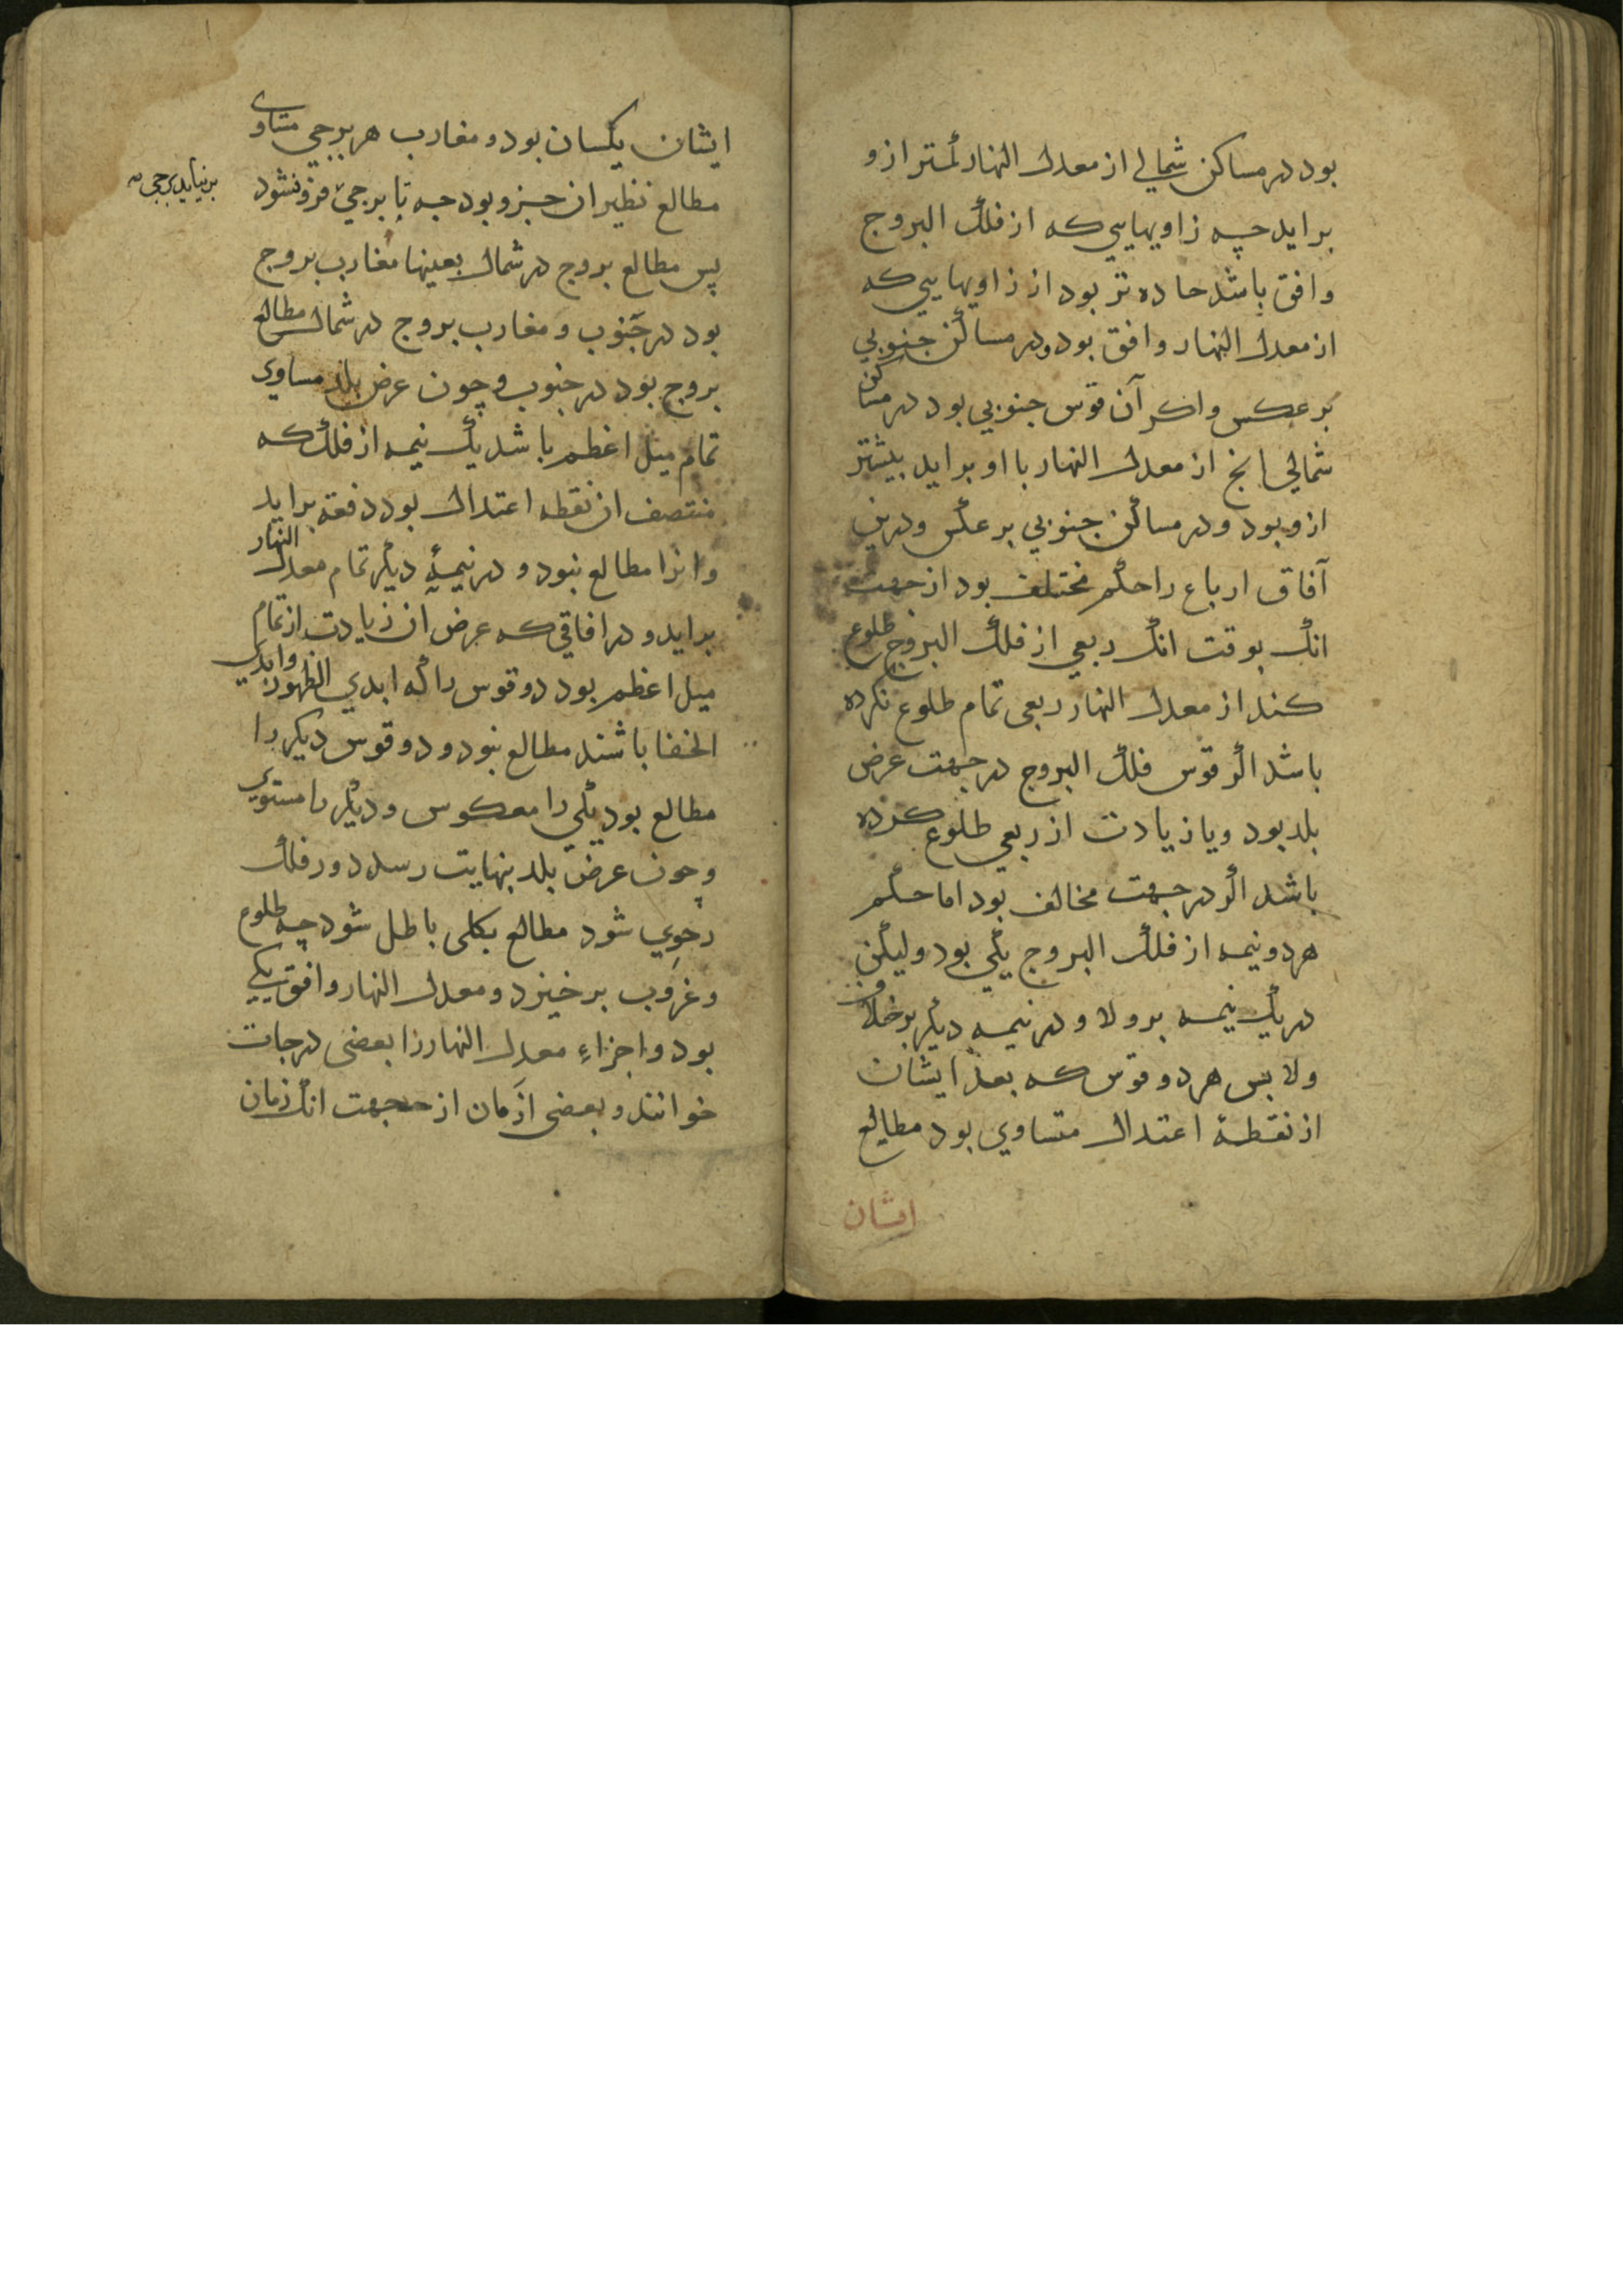 بود در مساکن شمالی از معدل النهار کمتر از و
براید چه زاویهایی که از فلک البروج
وافق باشد حاده تر بود از زاویهایی که
از معدل النهار وافق بود و در مساکن جنوبی
بر عکس واکر آن قوس جنوبی بود در مساکن
شمالی انج از معدل النهار با او براید بیشتر
ازو بود و در مساکن جنوبی بر عکس و درین
آفاق ارباع را حکم مختلف بود از جهت
انک بوقت انک ربعی از فلک البروج طلوع
کند از معدل النهار ربعی تمام طلوع نکرده
باشد اکر قوس فلک البروج در جهت عرض
بلد بود و یا زیادت از ربعی طلوع کرده
باشد اکر در جهت مخالف بود اما حکم
هر دو نیمه از فلک البروج یکی بود ولیکن
در یک نیمه بر ولا و در نیمه دیکر بر خلاف
ولا بس هر دو قوس که بعد ایشان
از نقطهٔ اعتدال متساوی بود مطالع
ایشان
ایشان یکسان بود و مغارب هر برجی متساوی
مطالع نظیر ان جزو بود چه تا برجی فرو نشود
برنیاید برجی
پس مطالع بروج در شمال بعینها مغارب بروج
بود در جنوب و مغارب بروج در شمال مطالع
بروج بود در جنوب و چون عرض بلد مساوی
تمام میل اعظم باشد یک نیمه از فلک که
منتصف ان نقطه اعتدال بود دفعة براید
وانرا مطالع نبود و در نیمهٔ دیکر تمام معدل النهار
براید و در افاقی که عرض ان زیادت از تمام
میل اعظم بود دو قوس را که ابدی الظهور وابدی
الخفا باشند مطالع نبود و دو قوس دیکر را
مطالع بود یکی را معکوس و دیکر را مستوی
و چون عرض بلد بنهایت رسد دور فلک
رحوی شود مطالع بکلی باطل شود چه طلوع
و غروب بر خیزد و معدل النهار وافق یکی
بود و اجزاء معدل النهار را بعضی درجات
خوانند و بعضی ازمان از جهت انک زمان